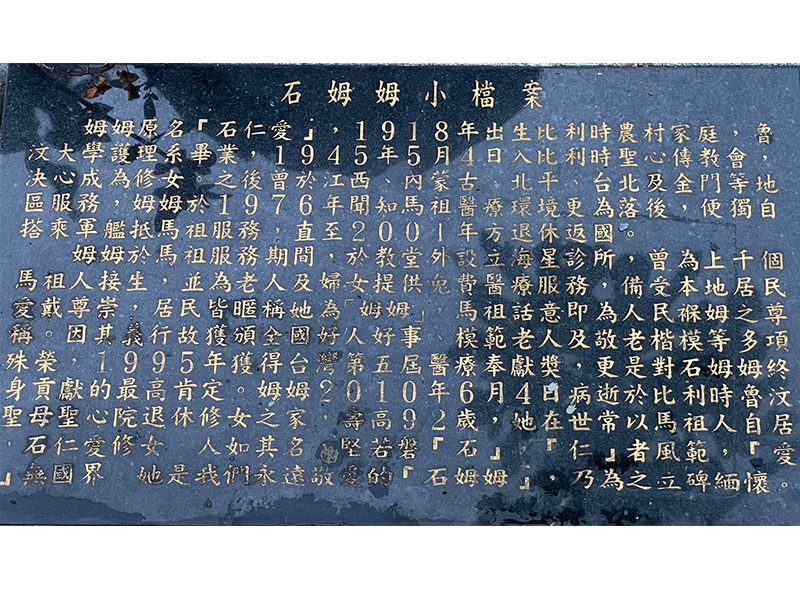 石姆姆小檔案
姆姆原名『石仁愛』，1918年出生比利時農村家庭，魯
汶大學護理系畢業，1945年5月4日入比利時聖心傳教會，
決心成為修女。之後曾於江西、內蒙古、北平、台北及金門等地
區服務，姆姆於1976年聞知馬祖醫療環境更為落後，便獨自
搭乘軍艦抵馬祖服務，直至2001年方退休返國。
姆姆於馬祖服務期間，於教堂外設立海星診所，曾為上千個
馬祖人接生，並為老人及婦女提供免費醫療服務，備受本地居民
愛戴尊崇，居民皆暱稱她為「姆姆」、馬祖話意即為人民褓姆之尊
稱。因其義行故獲頒全國好人好事模範老人及敬老楷模等多項
殊榮，1995年獲得台灣第五屆醫療奉獻獎，更是對石姆姆終
身貢獻的最高肯定。姆姆2010年6月4日，病逝於比利時魯汶
聖母聖心院退休修女之家，壽高92歲，她在世常以馬祖人自居
，石仁愛修女，人如其名，堅若磐『石』，『仁』者風範，『愛
』無國界，她是我們永遠敬愛的『石姆姆』，乃為之立碑緬懷。